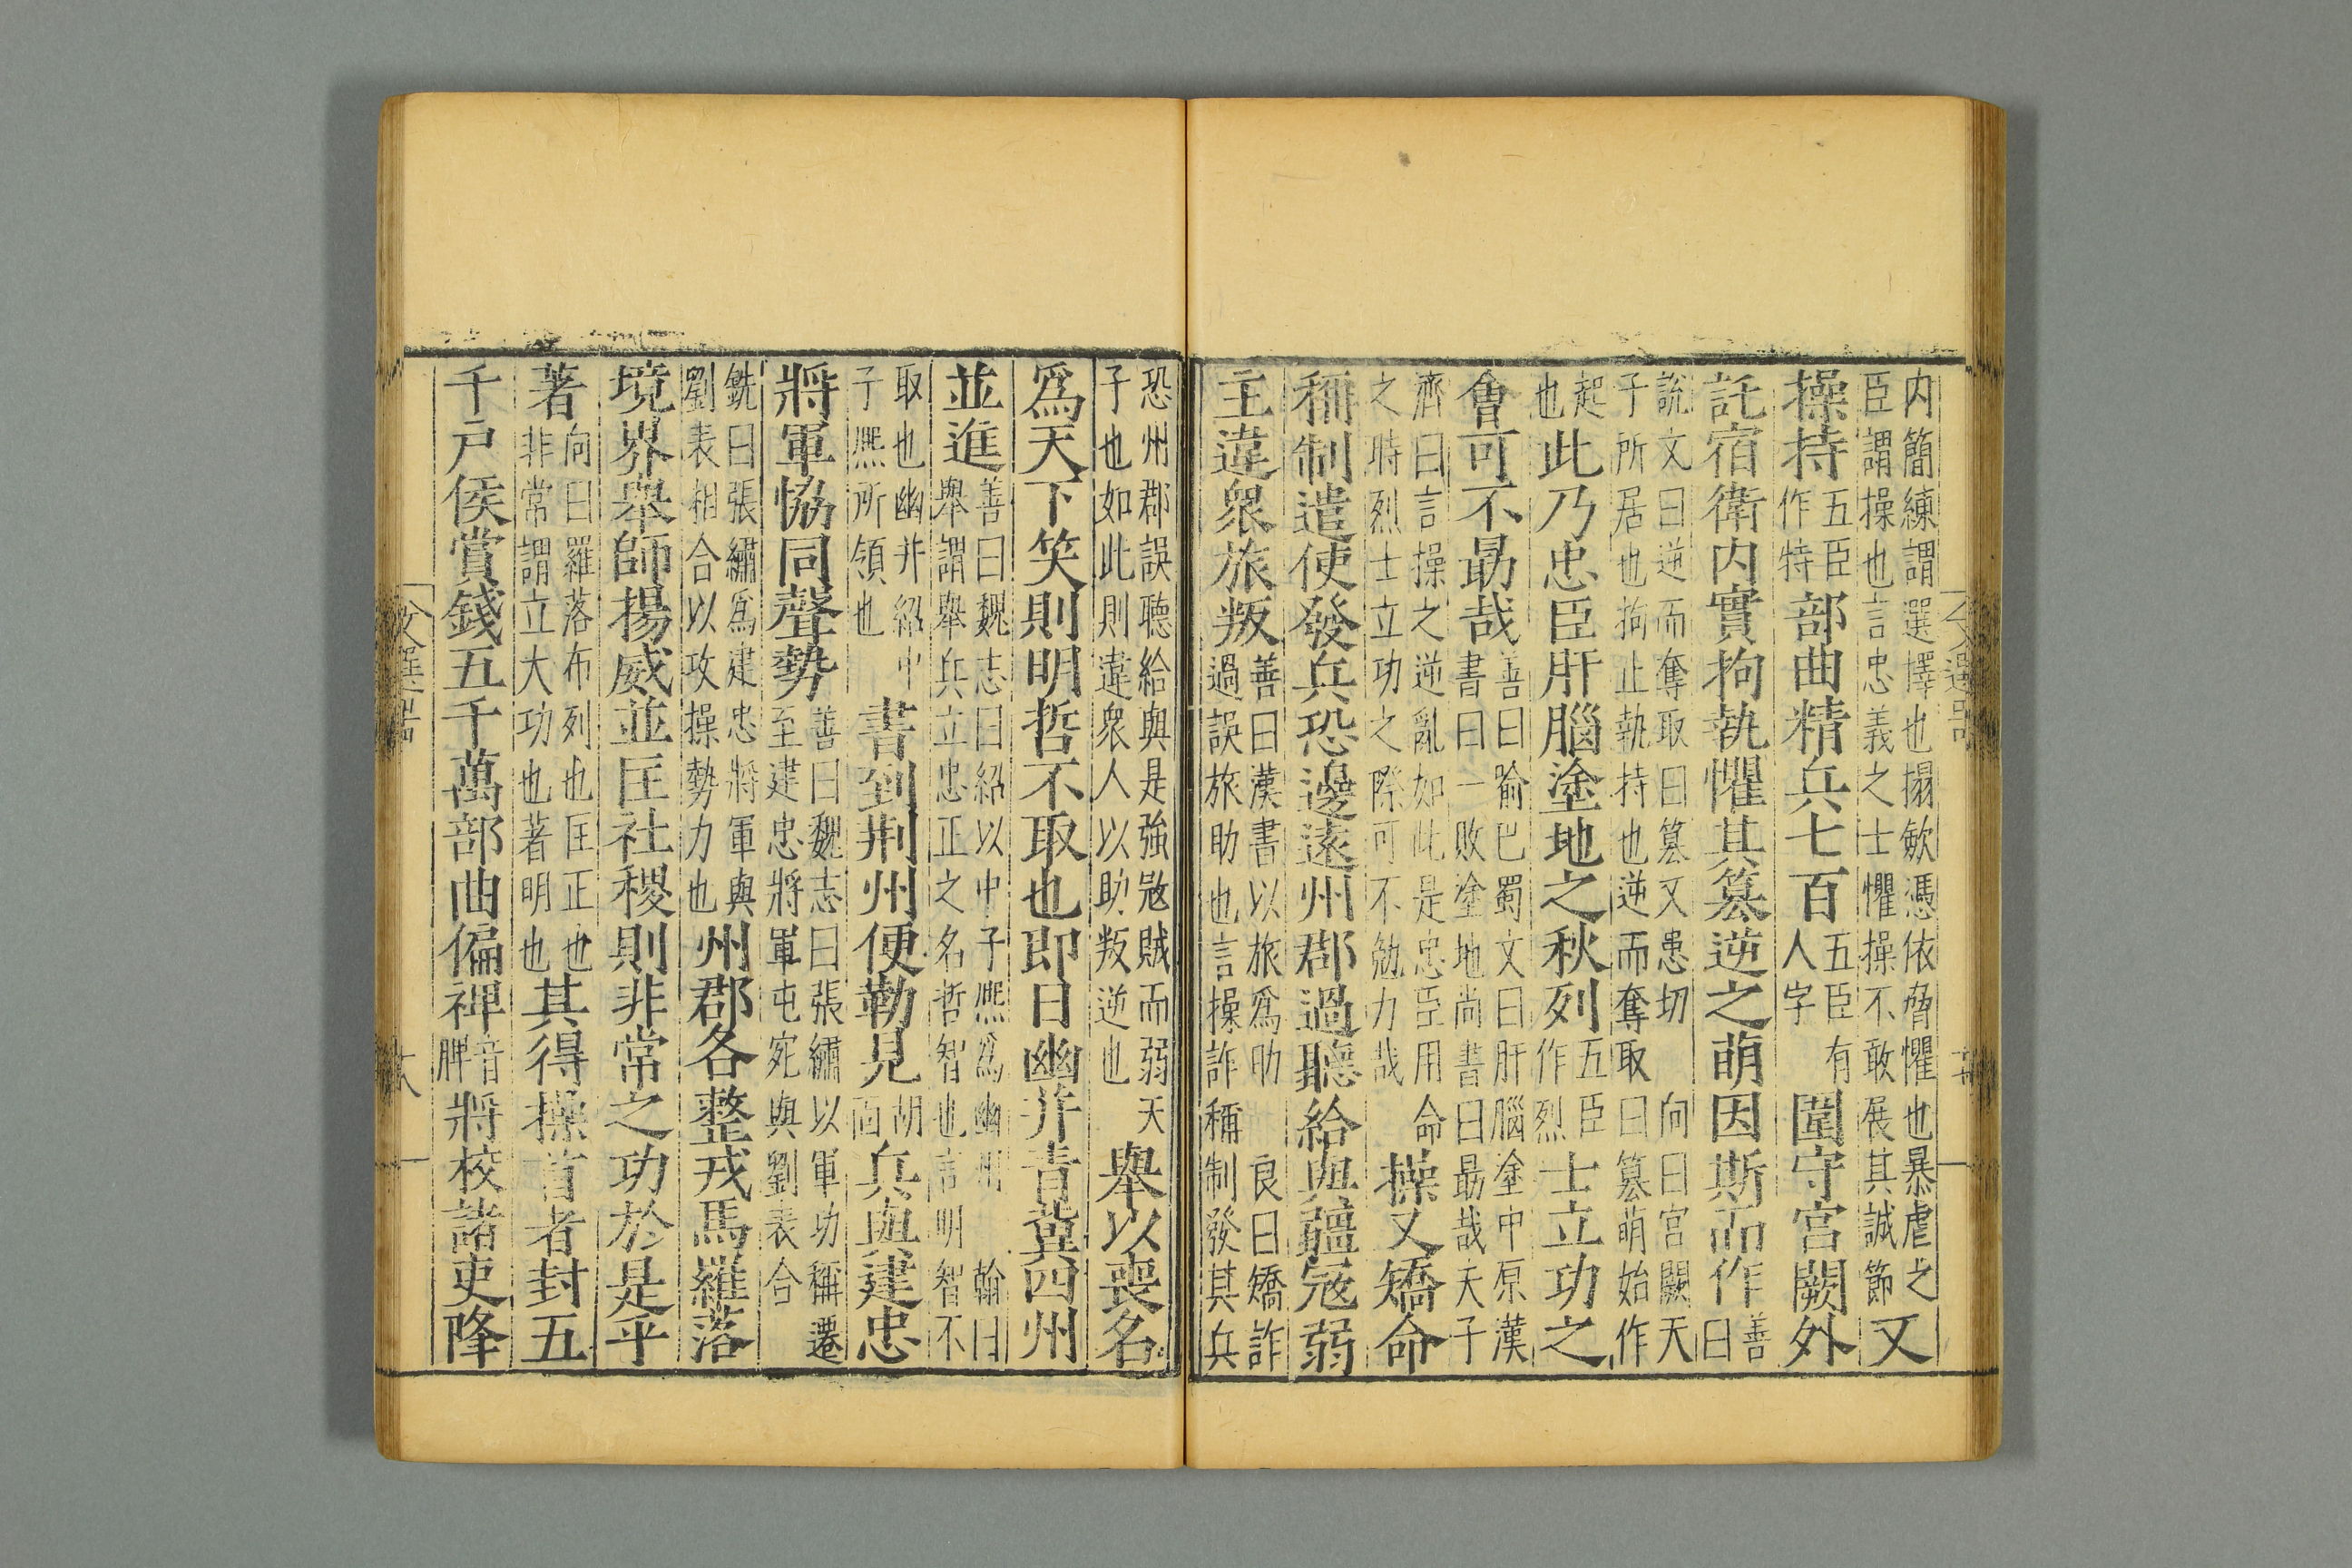 内簡練謂選擇也搨歛憑依脅懼也暴虐之
臣謂操也言忠義之士懼操不敢展其誠節又
操持五臣作特部曲精兵七百五臣有人字圍守宫闕外
託宿衛内實拘執懼其篡逆之萌因斯而作善曰
説文曰逆而奪取曰篡又患切向曰宫闕天
子所居也拘止執持也逆而奪取曰篡萌始作
起也此乃忠臣肝腦塗地之秋列五臣作烈士立功之
會可不勗哉善曰喻巴蜀文曰肝腦塗中原漢書曰一敗塗地尚書曰勗哉天子
濟曰言操之逆亂如此是忠臣用命
之時烈士立功之際可不勉力哉操又矯命
稱制遣使發兵恐邊遠州郡過聽給與疆冦弱
主違衆旅叛善曰漢書以旅爲助良曰矯詐過誤旅助也言操詐稱制發其兵
恐州郡誤聽給與是強冦賊而弱天
子也如此則違衆人以助叛逆也舉以喪名
爲天下笑則明哲不取也即日幽并青冀四州
並進善曰魏志曰紹以中子熙爲幽州翰曰舉謂舉兵立忠正之名哲智也言明智不
取也幽并紹中子熙所領也書到荆州便勒見胡面兵與建忠
將軍協同聲勢善曰魏志曰張繡以軍功稱遷至建忠將軍屯宛與劉表合
銑曰張繡爲建忠將軍與劉表相合以攻操勢力也州郡各整戎馬羅落
境界舉師揚威並匡社稷則非常之功於是乎
著向曰羅落布列也匡正也非常謂立大功也著明也其得操首者封五
千户侯賞錢五千萬部曲偏裨音脾將校諸吏降
文選
六